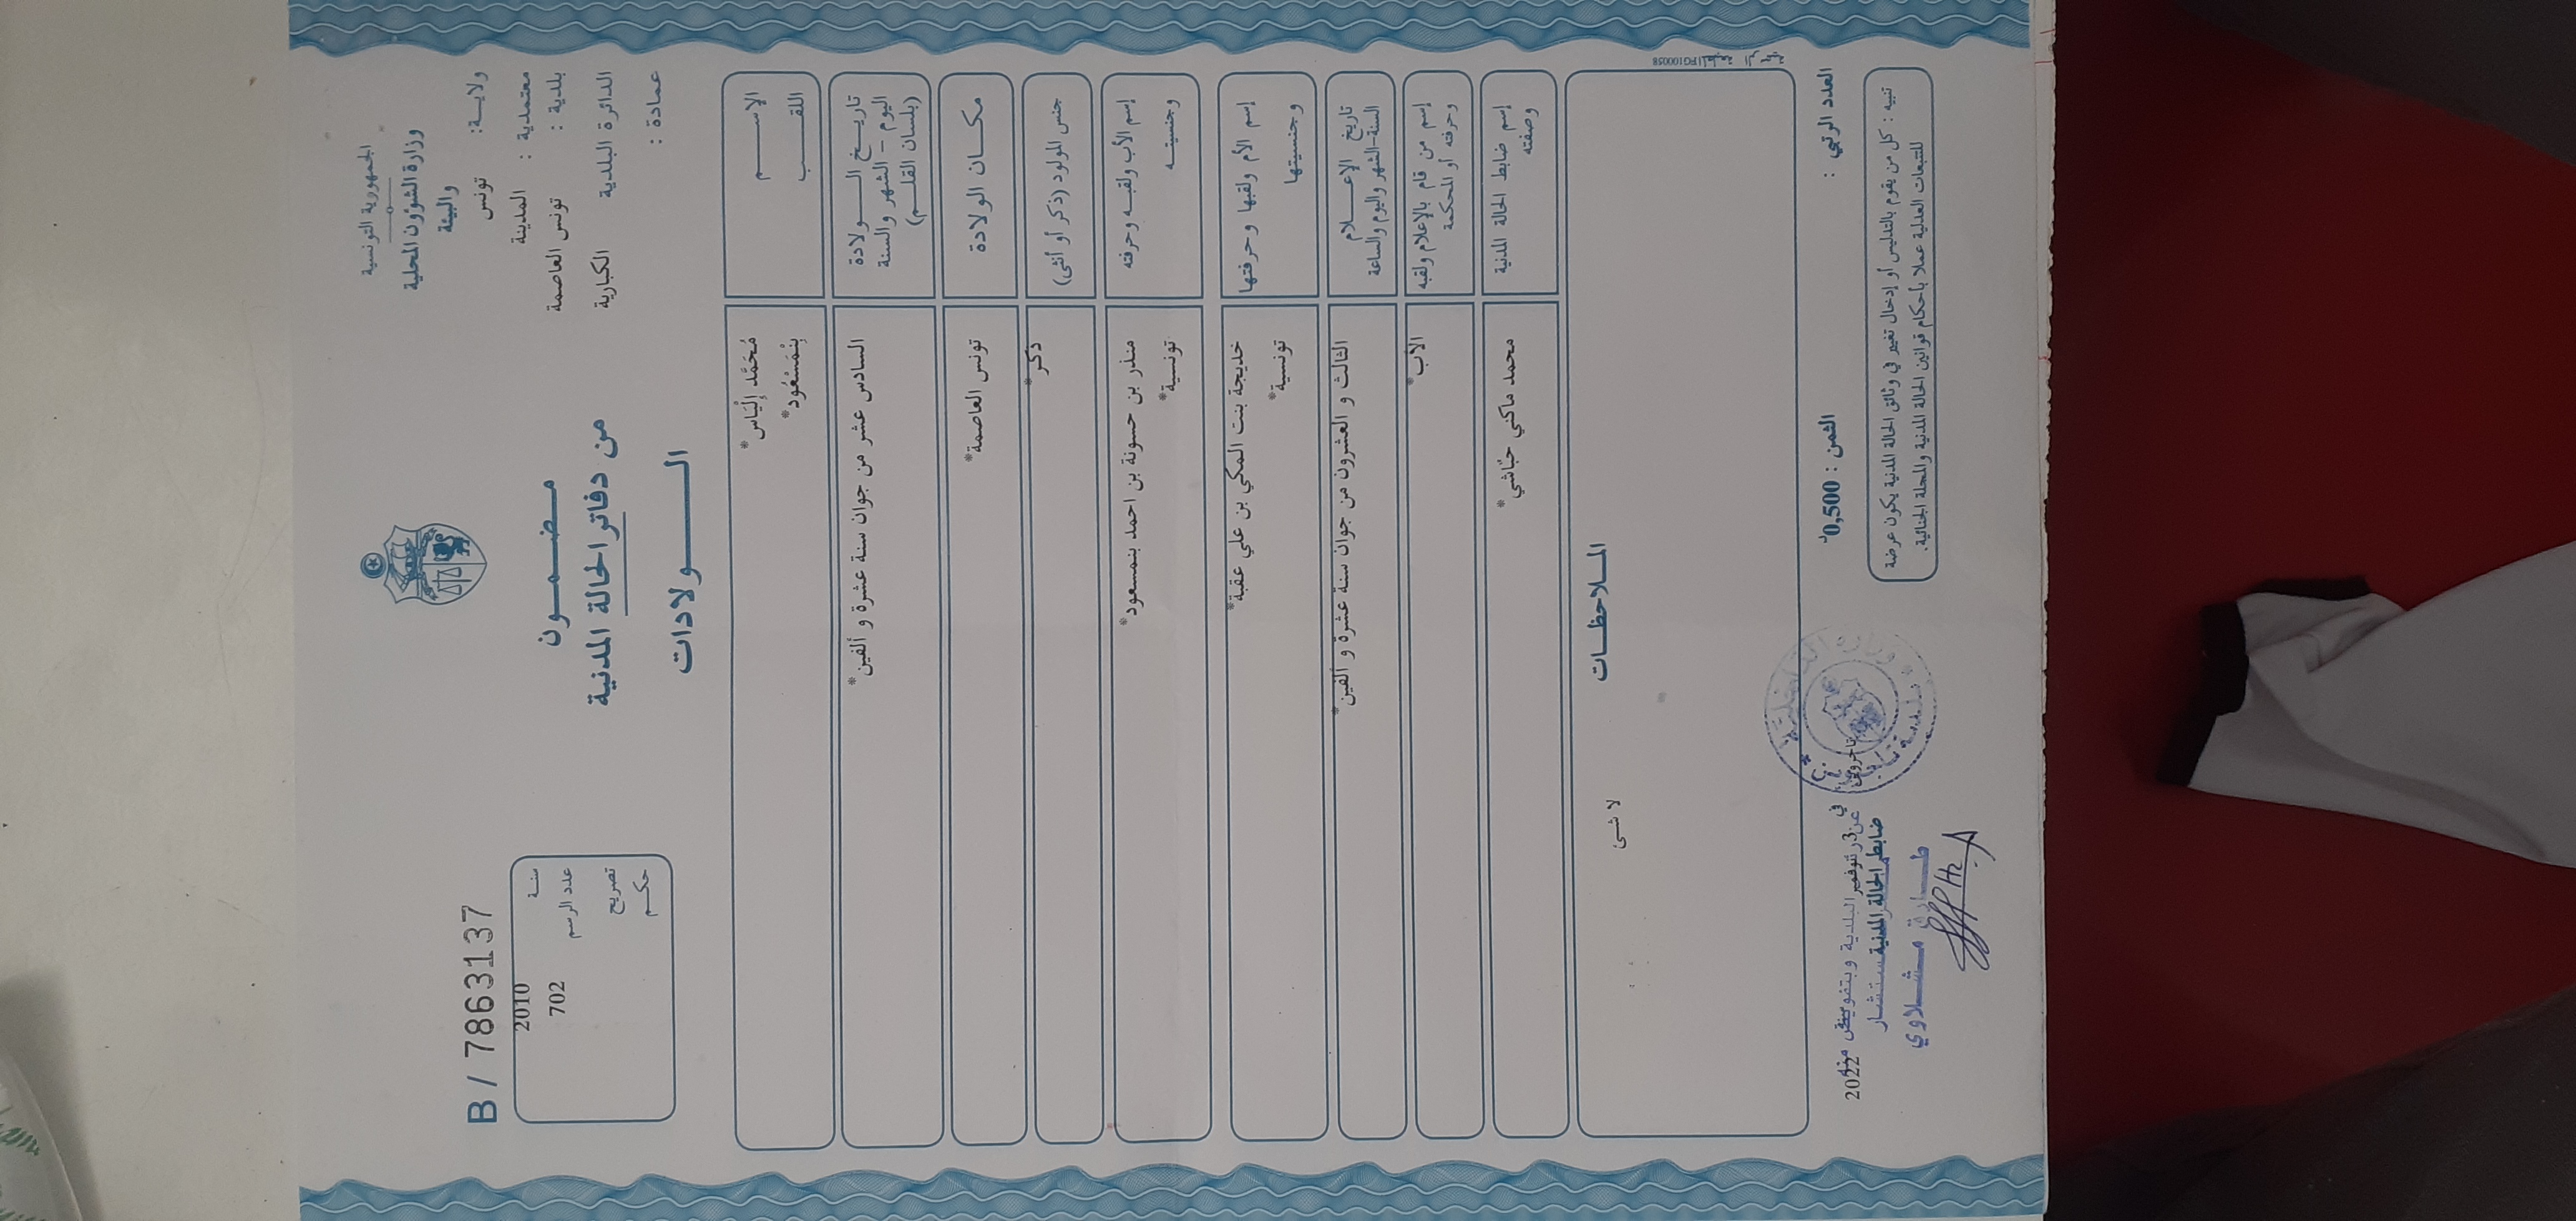 الجمهورية التونسية
وزارة الشؤون المحلية
والبيئة
ولايـــة: تونس
معتمدية : المدينة
بلدية : تونس العاصمة
الدائرة البلدية الكبارية
عمادة :
مـضـمـــون
من دفاتر الحالة المدنية
الــــولادات
B / 7863137
سنـة 2010
عدد الرسم 702
تصريح
حكـم
الإســـــم مُحَمَّد إِلْيَاس*
اللقــــب بِنْمَسْعُود*
تاريـــخ الـــــولادة
اليوم - الشهر والسنة
(بلسان القلـــم)
السادس عشر من جوان سنة عشرة و ألفين*
مكـــان الولادة تونس العاصمة*
جنس المولود (ذكر أو أنثى) ذكر*
إسم الأب ولقبــه وحرفته منذر بن حسونة بن احمد بنمسعود*
وجنسيتــه تونسية*
إسم الأم ولقبها وحرفتها خديجة بنت المكي بن علي عقبة*
وجنسيتها تونسية*
تاريخ الإعـــلام
السنة-الشهر واليوم والساعة
الثالث و العشرون من جوان سنة عشرة و ألفين*
إسم من قام بالإعلام ولقبه
وحرفته أو المحكمة
الأب*
إسم ضابط الحالة المدنية
وصفته
محمد ماكني حبّاشي*
المـــلاحظـــات
لا شـى
العدد الرتبي :
الثمن : 0,500د
تنبيه : كل من يقوم بالتدليس أو إدخال تغيير في وثائق الحالة المدنية يكون عرضة
للتتبعات العدلية عملا بأحكام قوانين الحالة المدنية والمجلة الجنائية.
في 3 نوفمبر 2022
ضابط الحالة المدنية
مستشار
طـــارق مـشـــلاوي